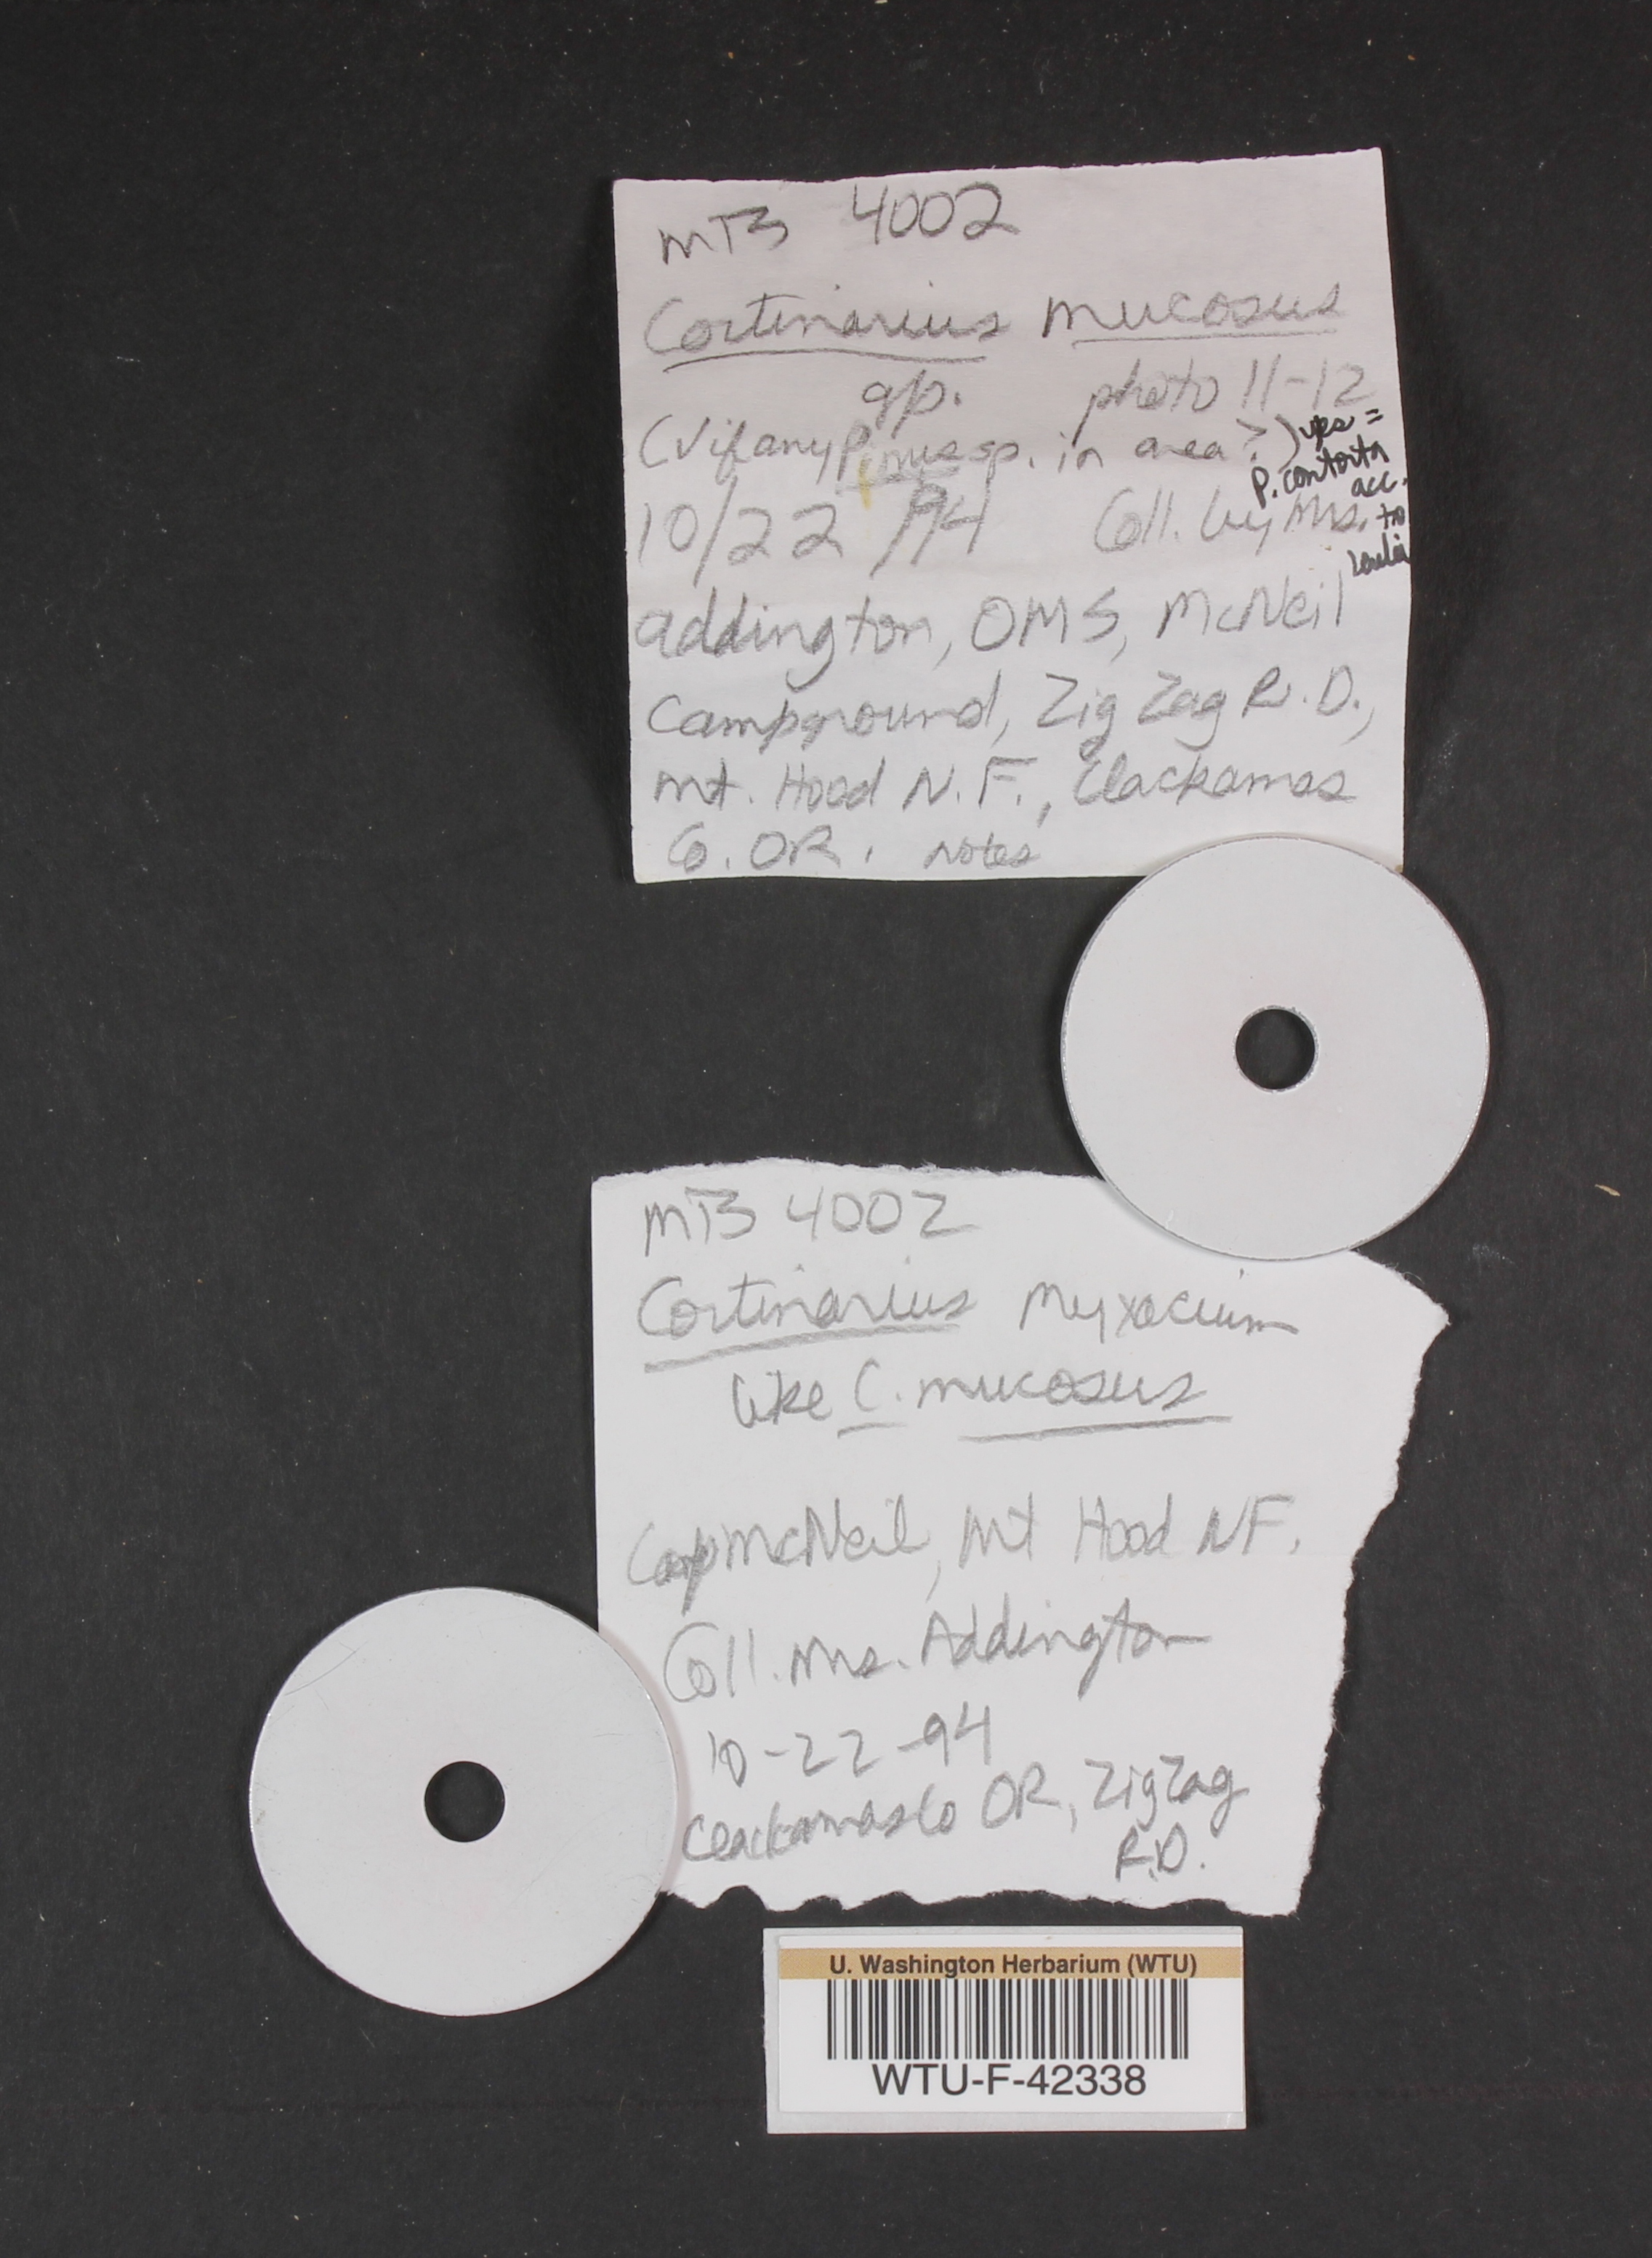 MTB 4002
Cortinarius mucosus
gp. photo 11-12
(√ if any Pinus sp. in area?) yes =
P. contorta
acc.
10/22/94 Coll. by Mrs. to
Addington, OMS, McNeil
Campground, Zig Zag R.D.,
Mt. Hood N.F., Clackamas
Co. OR. Notes
MTB 4002
Cortinarius Myxacium
like C. mucosus
Camp McNeil, Mt Hood NF.
Coll. Mrs. Addington
10-22-94
Clackamas Co OR, ZigZag
R.D.
U. Washington Herbarium (WTU)
WTU-F-42338